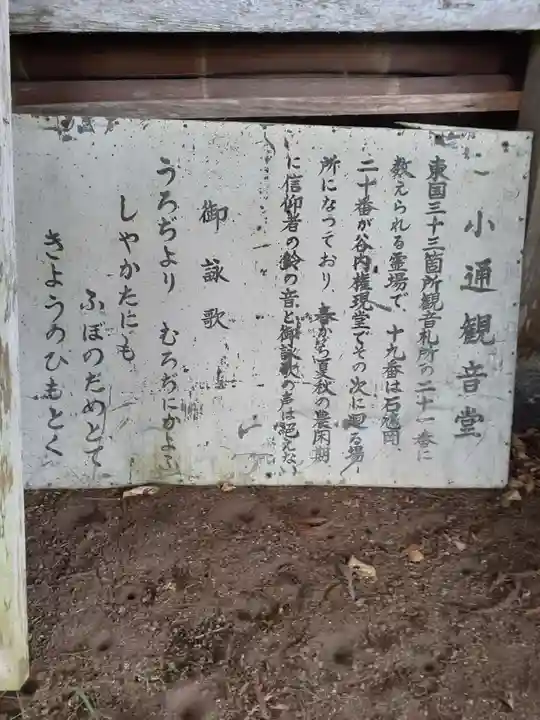 小通観音堂
東国三十三箇所観音札所の二十一番に
数えられる霊場で、十九番は石尨岡、
二十番が谷内権現堂でその次に廻る場
所になっており、春から夏秋の農閑期
に信仰者の鈴の音と御詠歌の声は絶えない
御詠歌
うろぢより　むろぢにかよふ
しやかたにも
ふぼのためとて
きようのひもとく